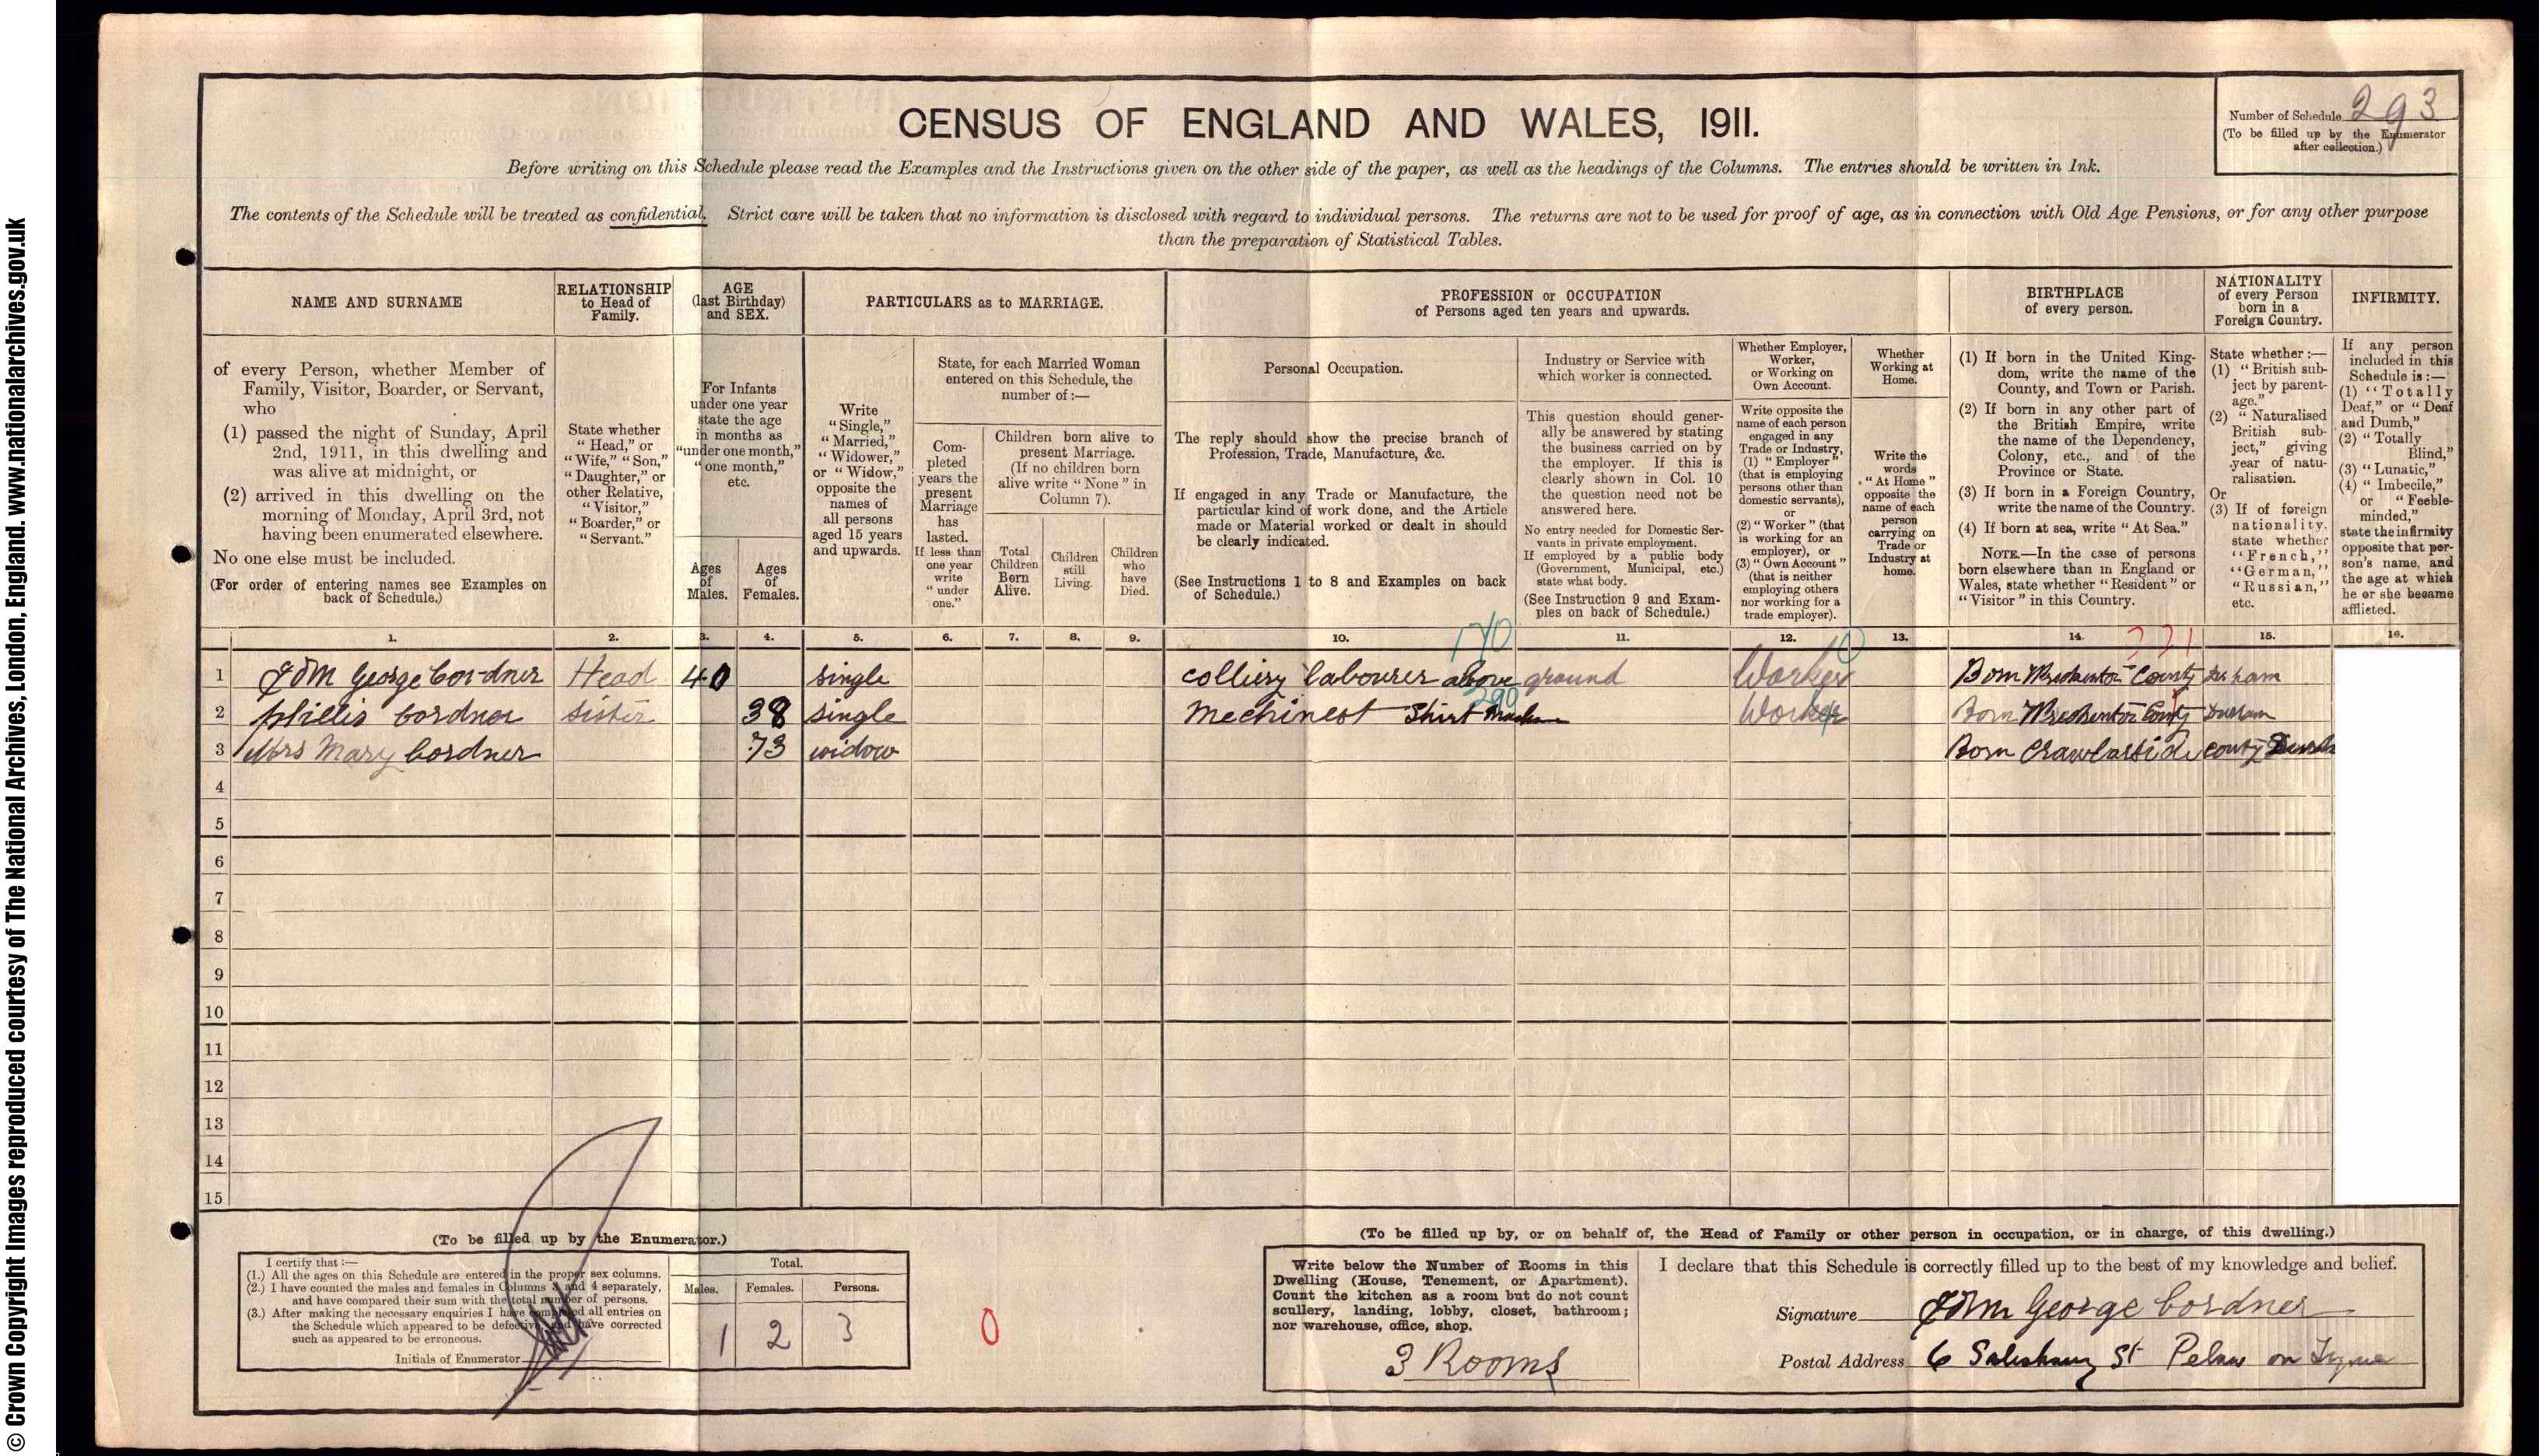 © Crown Copyright Images reproduced courtesy of The National Archives, London, England. www.nationalarchives.gov.uk
CENSUS OF ENGLAND AND WALES, 1911.
Number of Schedule 293
(To be filled up by the Enumerator
after collection.)
Before writing on this Schedule please read the Examples and the Instructions given on the other side of the paper, as well as the headings of the Columns. The entries should be written in Ink.
The contents of the Schedule will be treated as confidential. Strict care will be taken that no information is disclosed with regard to individual persons. The returns are not to be used for proof of age, as in connection with Old Age Pensions, or for any other purpose
than the preparation of Statistical Tables.
NAME AND SURNAME
of every Person, whether Member of
Family, Visitor, Boarder, or Servant,
who
(1) passed the night of Sunday, April
2nd, 1911, in this dwelling and
was alive at midnight, or
(2) arrived in this dwelling on the
morning of Monday, April 3rd, not
having been enumerated elsewhere.
No one else must be included.
(For order of entering names see Examples on
back of Schedule.)
RELATIONSHIP
to Head of
Family.
State whether
"Head," or
"Wife," "Son,"
"Daughter," or
other Relative,
"Visitor,"
"Boarder," or
"Servant."
AGE
(last Birthday)
and SEX.
For Infants
under one year
state the age
in months as
"under one month,"
"one month,"
etc.
Ages
of
Males.
Ages
of
Females.
PARTICULARS as to MARRIAGE.
Write
"Single,"
"Married,"
"Widower,"
or "Widow,"
opposite the
names of
all persons
aged 15 years
and upwards.
State, for each Married Woman
entered on this Schedule, the
number of :—
Com-
pleted
years the
present
Marriage
has
lasted.
If less than
one year
write
"under
one."
Children born alive to
present Marriage.
(If no children born
alive write "None" in
Column 7).
Total
Children
Born
Alive.
Children
still
Living.
Children
who
have
Died.
PROFESSION or OCCUPATION
of Persons aged ten years and upwards.
Personal Occupation.
The reply should show the precise branch of
Profession, Trade, Manufacture, &c.
If engaged in any Trade or Manufacture, the
particular kind of work done, and the Article
made or Material worked or dealt in should
be clearly indicated.
(See Instructions 1 to 8 and Examples on back
of Schedule.)
Industry or Service with
which worker is connected.
This question should gener-
ally be answered by stating
the business carried on by
the employer. If this is
clearly shown in Col. 10
the question need not be
answered here.
No entry needed for Domestic Ser-
vants in private employment.
If employed by a public body
(Government, Municipal, etc.)
state what body.
(See Instruction 9 and Exam-
ples on back of Schedule.)
Whether Employer,
Worker,
or Working on
Own Account.
Write opposite the
name of each person
engaged in any
Trade or Industry,
(1) "Employer"
(that is employing
persons other than
domestic servants),
or
(2) "Worker" (that
is working for an
employer), or
(3) "Own Account"
(that is neither
employing others
nor working for a
trade employer).
Whether
Working at
Home.
Write the
words
"At Home"
opposite the
name of each
person
carrying on
Trade or
Industry at
home.
BIRTHPLACE
of every person.
(1) If born in the United King-
dom, write the name of the
County, and Town or Parish.
(2) If born in any other part of
the British Empire, write
the name of the Dependency,
Colony, etc., and of the
Province or State.
(3) If born in a Foreign Country,
write the name of the Country.
(4) If born at sea, write "At Sea."
NOTE.—In the case of persons
born elsewhere than in England or
Wales, state whether "Resident" or
"Visitor" in this Country.
NATIONALITY
of every Person
born in a
Foreign Country.
State whether :—
(1) "British sub-
ject by parent-
age."
(2) "Naturalised
British sub-
ject," giving
year of natu-
ralisation.
Or
(3) If of foreign
nationality,
state whether
"French,"
"German,"
"Russian,"
etc.
INFIRMITY.
If any person
included in this
Schedule is :—
(1) "Totally
Deaf," or "Deaf
and Dumb,"
(2) "Totally
Blind,"
(3) "Lunatic,"
(4) "Imbecile,"
or "Feeble-
minded,"
state the infirmity
opposite that per-
son's name, and
the age at which
he or she became
afflicted.
1. 2. 3. 4. 5. 6. 7. 8. 9. 10. 11. 12. 13. 14. 15. 16.
170 0 221
1 George Cordner Head 40 single colliery labourer above ground Worker Born County Durham
290
2 phillis Cordner sister 38 single mechinest Shirt Worker Born County Durham
3 Mrs Mary Cordner 73 widow Born County
4
5
6
7
8
9
10
11
12
13
14
15
(To be filled up by the Enumerator.)
I certify that :—
(1.) All the ages on this Schedule are entered in the proper sex columns.
(2.) I have counted the males and females in Columns 3 and 4 separately,
and have compared their sum with the total number of persons.
(3.) After making the necessary enquiries I have completed all entries on
the Schedule which appeared to be defective, and have corrected
such as appeared to be erroneous.
Initials of Enumerator
Total.
Males. Females. Persons.
1 2 3
0
(To be filled up by, or on behalf of, the Head of Family or other person in occupation, or in charge, of this dwelling.)
Write below the Number of Rooms in this
Dwelling (House, Tenement, or Apartment).
Count the kitchen as a room but do not count
scullery, landing, lobby, closet, bathroom ;
nor warehouse, office, shop.
3 Rooms
I declare that this Schedule is correctly filled up to the best of my knowledge and belief.
Signature George Cordner
Postal Address 6 Salisbury St Pelaw on Tyne